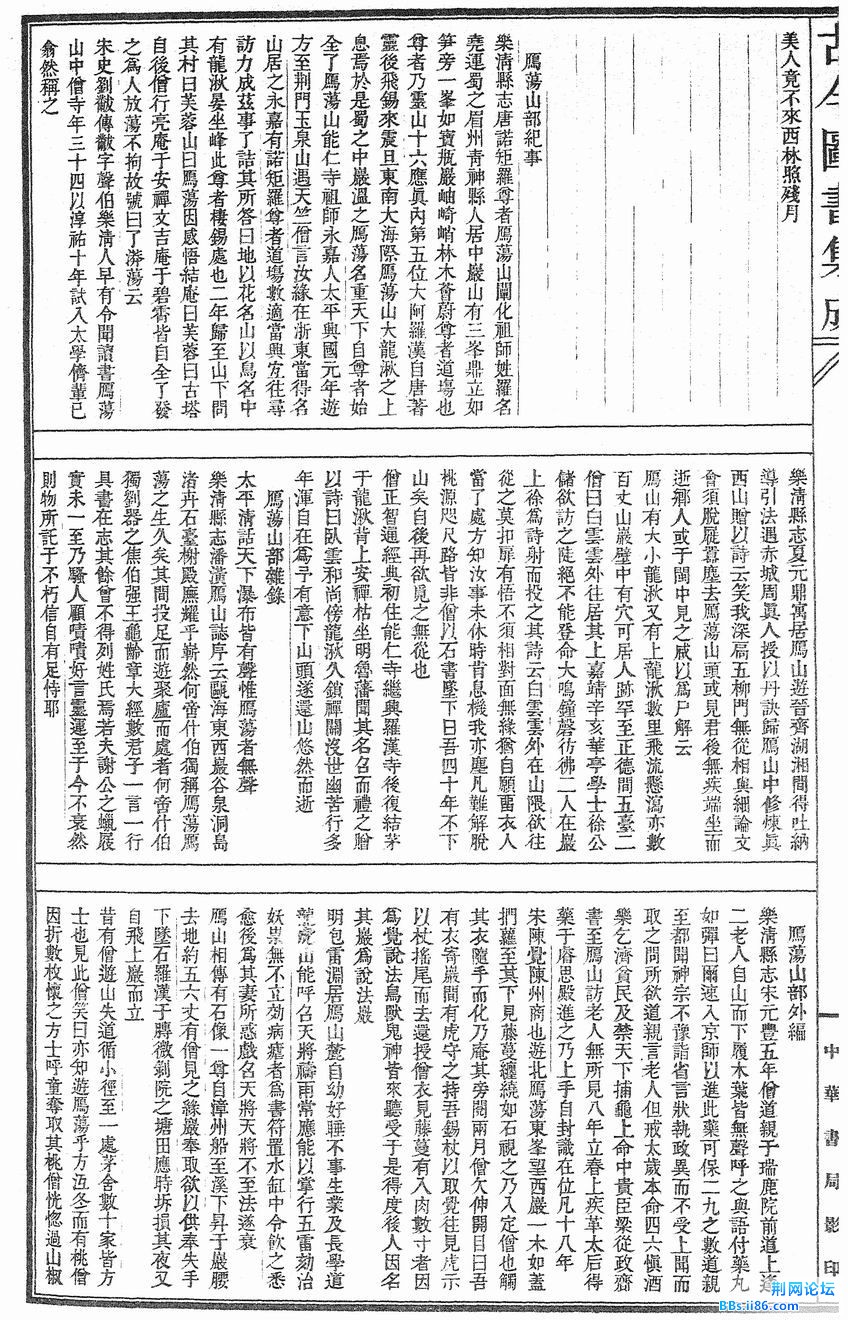 古今圖書集成
美人竟不來西林照殘月
鴈蕩山部紀事
樂清縣志唐諾矩羅尊者鴈蕩山闡化祖師姓羅名
堯運蜀之眉州青神縣人居中巖山有三峯鼎立如
筍旁一峯如寶瓶巖岫崎峭林木薈蔚尊者道場也
尊者乃靈山十六應眞內第五位大阿羅漢自唐著
靈後飛錫來震旦東南大海際鴈蕩山大龍湫之上
息焉於是蜀之中巖溫之鴈蕩名重天下自尊者始
全了鴈蕩山能仁寺祖師永嘉人太平興國元年遊
方至荆門玉泉山遇天竺僧言汝緣在浙東當得名
山居之永嘉有諾矩羅尊者道場數適當興宐往尋
訪力成茲事了詰其所答曰地以花名山以鳥名中
有龍湫晏坐峰此尊者棲錫處也二年歸至山下問
其村曰芙蓉山曰鴈蕩因感悟結庵曰芙蓉曰古塔
自後僧行亮庵于安禪文吉庵于碧霄皆自全了發
之爲人放蕩不拘故號曰了漭蕩云
宋史劉黻傳黻字聲伯樂清人早有令聞讀書鴈蕩
山中僧寺年三十四以淳祐十年試入太學儕輩已
翕然稱之
樂清縣志夏元鼎寓居鴈山遊晉齊湖湘間得吐納
導引法遇赤城周眞人授以丹訣歸鴈山中修煉眞
西山贈以詩云笑我深扃五柳門無從相與細論文
會須脫屣囂塵去鴈蕩山頭或見君後無疾端坐而
逝鄉人或于閩中見之咸以爲尸解云
鴈山有大小龍湫又有上龍湫數里飛流懸瀉亦數
百丈山巖壁中有穴可居人跡罕至正德間五臺二
僧曰白雲雲外往居其上嘉靖辛亥華亭學士徐公
儲欲訪之陡絕不能登命大鳴鐘磬彷彿二人在巖
上徐爲詩射而投之其詩云白雲雲外在山隈欲往
從之莫扣扉有悟不須相對面無緣猶自願畱衣人
當了處方知汝事未休時肯息機我亦塵凡難解脫
桃源咫尺路皆非僧以石書墜下曰吾四十年不下
山矣自後再欲覓之無從也
僧正智通經典初住能仁寺繼興羅漢寺後復結茅
于龍湫背上安禪枯坐明魯藩聞其名召而禮之贈
以詩曰臥雲和尚傍龍湫久鎖禪關沒世幽苦行多
年渾自在爲予有意下山頭遂還山悠然而逝
鴈蕩山部雜錄
太平清話天下瀑布皆有聲惟鴈蕩者無聲
樂清縣志潘潢鴈山誌序云甌海東西巖谷泉洞島
渚卉石臺榭殿廡耀乎嶄然何啻什伯獨稱鴈蕩鴈
蕩之生久矣其間投足而遊聚廬而處者何啻什伯
獨劉器之焦伯强王龜齡章大經數君子一言一行
具書在志其餘曾不得列姓氏焉若夫謝公之蠟屐
實未一至乃騷人顧嘖嘖好言靈運至于今不衰然
則物所託于不朽信自有足恃耶
鴈蕩山部外編
樂清縣志宋元豐五年僧道親于瑞鹿院前道上逢
二老人自山而下履木葉皆無聲呼之與語付藥丸
如彈曰爾速入京師以進此藥可保二九之數道親
至都聞神宗不豫詣省言狀執政異而不受上聞而
取之問所欲道親言老人但戒太歲本命四六愼酒
樂乞濟貧民及禁天下捕龜上命中貴臣梁從政齎
書至鴈山訪老人無所見八年立春上疾革太后得
藥于睿思殿進之乃上手自封識在位凡十八年
宋陳覺陳州商也遊北鴈蕩東峯望西巖一木如蓋
捫蘿至其下見藤蔓纏繞如石視之乃入定僧也觸
其衣隨手而化乃庵其旁閱兩月僧欠伸開目曰吾
有衣寄巖間有虎守之持吾錫杖以取覺往見虎示
以杖搖尾而去還授僧衣見藤蔓有入肉數寸者因
爲覺說法鳥獸鬼神皆來聽受于是得度後人因名
其巖爲說法巖
明包雷淵居鴈山麓自幼好睡不事生業及長學道
龍虎山能呼召天將禱雨常應能以掌行五雷劾治
妖祟無不立効病瘧者爲書符置水缸中令飮之悉
愈後爲其妻所惑戲名天將天將不至法遂衰
鴈山相傳有石像一尊自漳州船至溪下昇于巖腰
去地約五六丈有僧見之緣巖奉取欲以供奉失手
下墜石羅漢于膊微剝院之塘田應時坼損其夜又
自飛上巖而立
昔有僧遊山失道循小徑至一處茅舍數十家皆方
士也見此僧笑曰亦知遊鴈蕩乎方沍冬而有桃僧
因折數枚懷之方士呼童奪取其桃僧恍惚過山椒
中華書局影印
荆网论坛
BBs.ii86.com